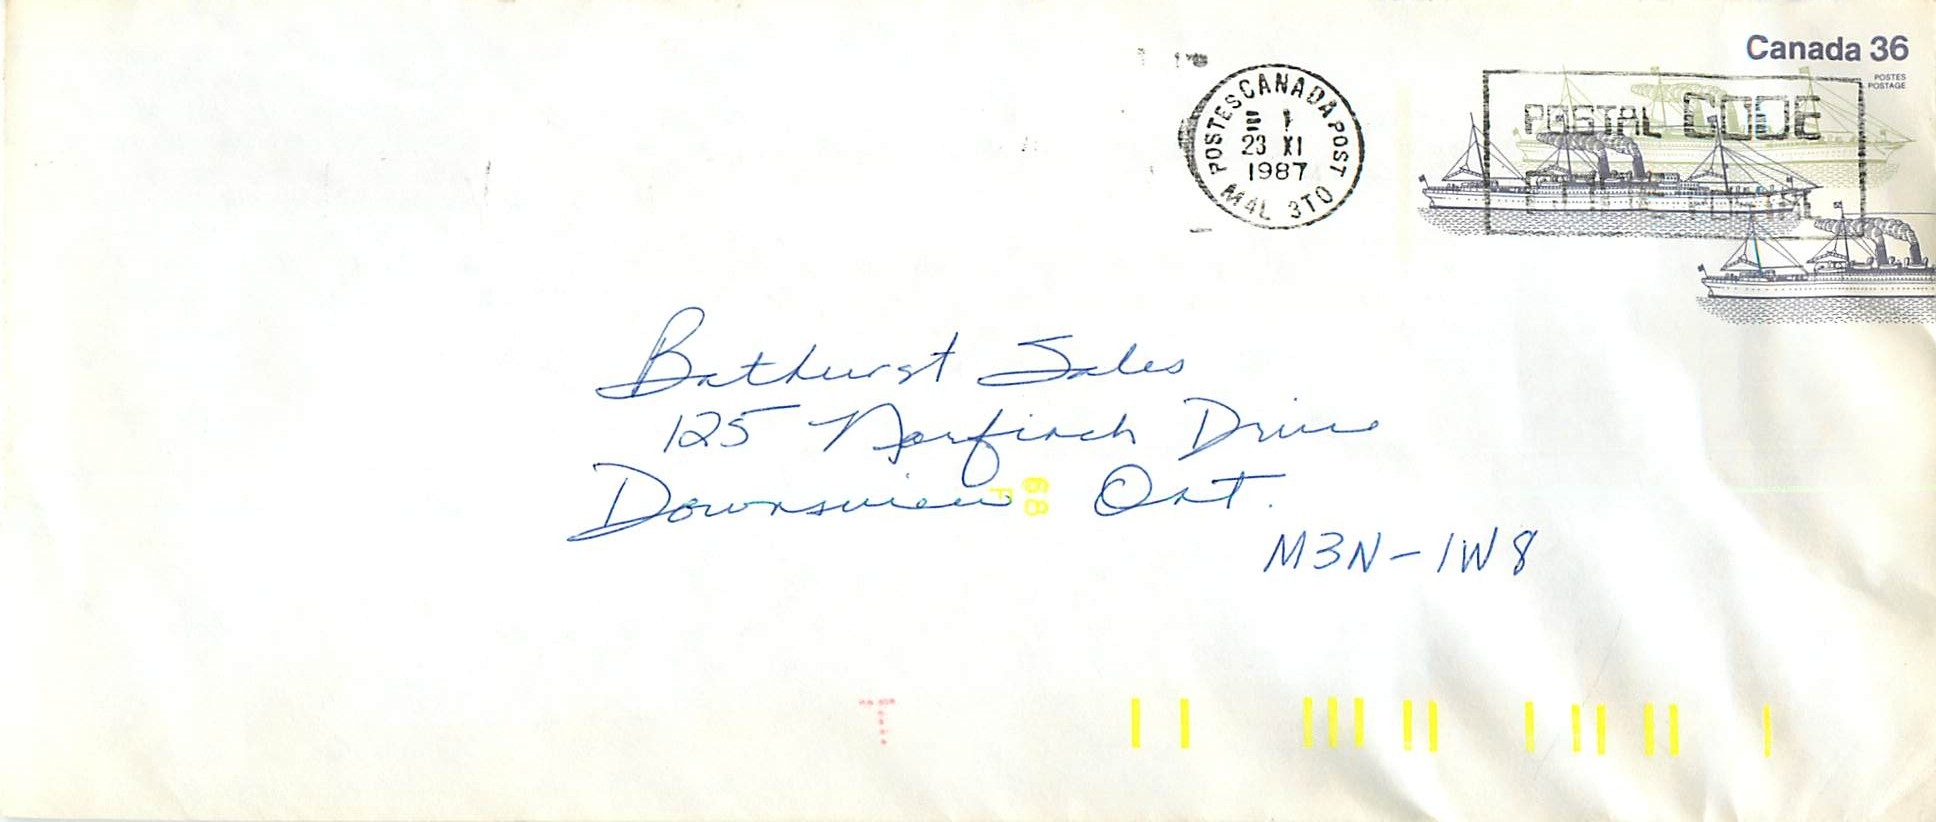 Canada 36
POSTES
POSTAGE
POSTES CANADA POST
23 XI
1987
M4L 3T0
POSTAL CODE
Bathurst Sales
125 Norfinch Drive
Downsview Ont.
M3N-1W8
68
F
T